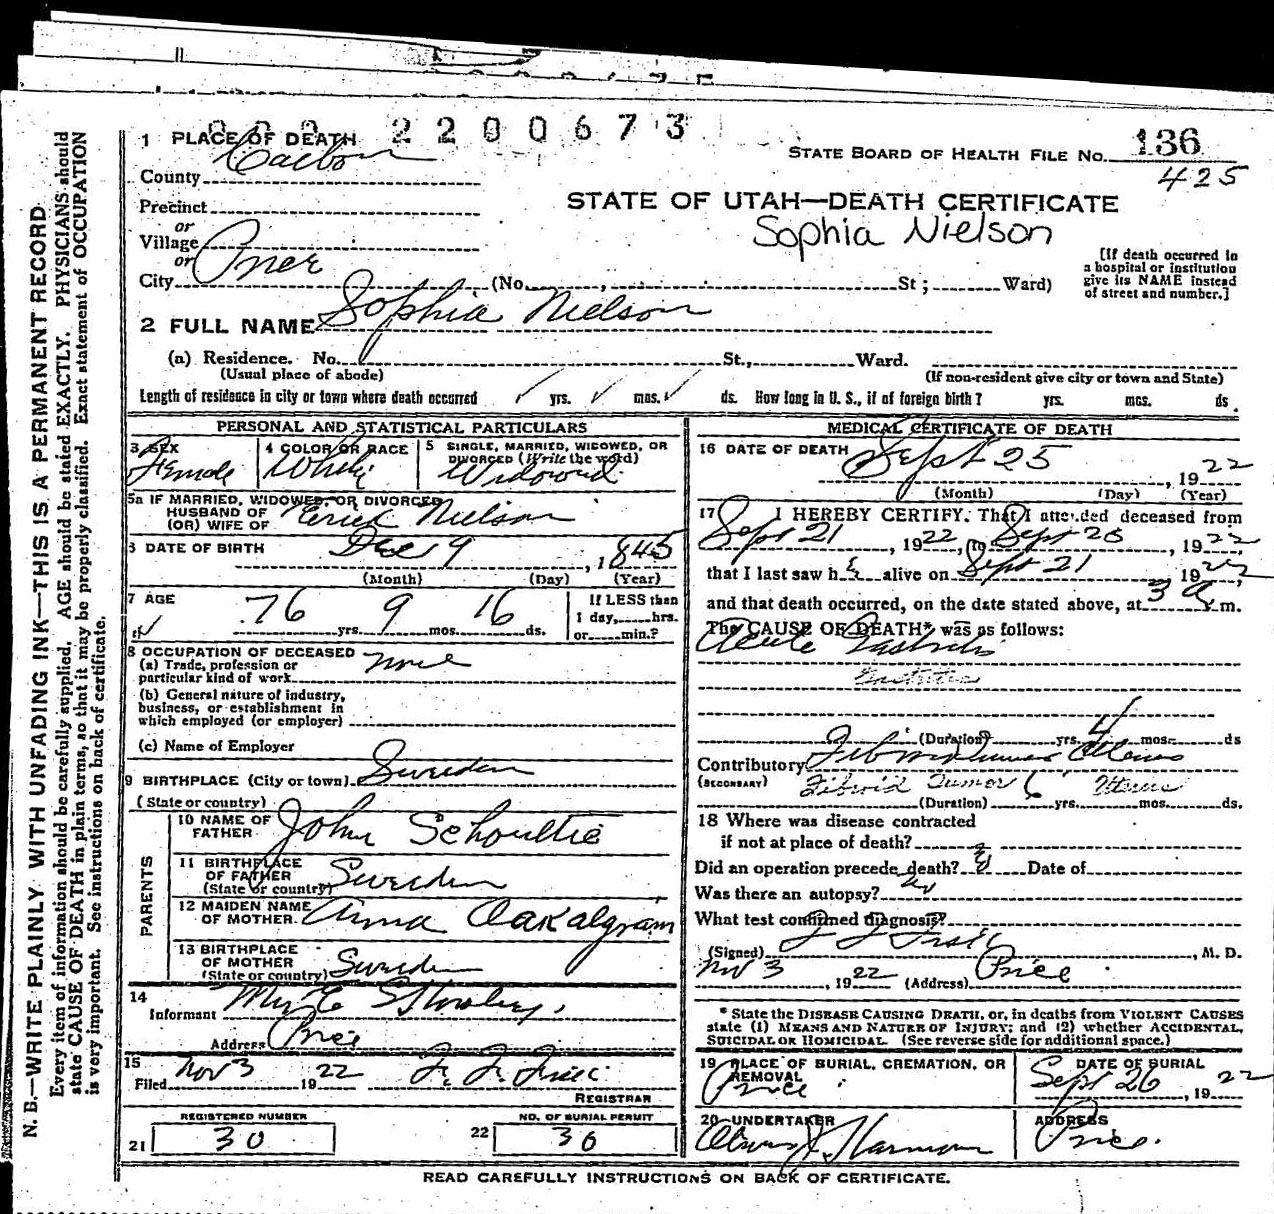 2200673
1 PLACE OF DEATH
STATE BOARD OF HEALTH FILE No. 136
425
County Carbon
Precinct
or
Village
or
City Price (No. , St ; Ward)
STATE OF UTAH—DEATH CERTIFICATE
Sophia Nielson
[If death occurred in
a hospital or institution
give its NAME instead
of street and number.]
2 FULL NAME Sophia Nielson
(a) Residence. No. St., Ward.
(Usual place of abode) (If non-resident give city or town and State)
Length of residence in city or town where death occurred yrs. mos. ds. How long in U. S., if of foreign birth? yrs. mos. ds.
PERSONAL AND STATISTICAL PARTICULARS
3 SEX Female
4 COLOR OR RACE White
5 SINGLE, MARRIED, WIDOWED, OR
DIVORCED (Write the word)
Widowed
5a IF MARRIED, WIDOWED, OR DIVORCED
HUSBAND OF
(OR) WIFE OF Erick Nielson
6 DATE OF BIRTH Dec 9, 1845
(Month) (Day) (Year)
7 AGE 76 yrs. 9 mos. 16 ds.
If LESS than
1 day, hrs.
or min.?
8 OCCUPATION OF DECEASED
(a) Trade, profession or
particular kind of work none
(b) General nature of industry,
business, or establishment in
which employed (or employer)
(c) Name of Employer
9 BIRTHPLACE (City or town) Sweden
(State or country)
PARENTS
10 NAME OF
FATHER John Schoultie
11 BIRTHPLACE
OF FATHER
(State or country) Sweden
12 MAIDEN NAME
OF MOTHER Anna Oakalgram
13 BIRTHPLACE
OF MOTHER
(State or country) Sweden
14
Informant
Address Price
15
Filed Nov 3 1922
REGISTRAR
REGISTERED NUMBER
21 30
NO. OF BURIAL PERMIT
22 30
MEDICAL CERTIFICATE OF DEATH
16 DATE OF DEATH Sept 25, 1922
(Month) (Day) (Year)
17 I HEREBY CERTIFY, That I attended deceased from
Sept 21, 1922, to Sept 25, 1922,
that I last saw her alive on Sept 21 1922,
and that death occurred, on the date stated above, at 3 A. m.
The CAUSE OF DEATH* was as follows:
Acute Gastritis
Gastritis
(Duration) yrs. mos. 4 ds
Contributory Fibroid tumor Uterus
(SECONDARY) Fibroid Tumor Uterus
(Duration) yrs. mos. ds.
18 Where was disease contracted
if not at place of death?
Did an operation precede death? Date of
Was there an autopsy? no
What test confirmed diagnosis?
(Signed) , M. D.
Nov 3, 1922 (Address) Price
* State the DISEASE CAUSING DEATH, or, in deaths from VIOLENT CAUSES
state (1) MEANS AND NATURE OF INJURY; and (2) whether ACCIDENTAL,
SUICIDAL OR HOMICIDAL. (See reverse side for additional space.)
19 PLACE OF BURIAL, CREMATION, OR
REMOVAL
Price
DATE OF BURIAL
Sept 26, 1922
20 UNDERTAKER
Harmon
ADDRESS
Price.
READ CAREFULLY INSTRUCTIONS ON BACK OF CERTIFICATE.
N. B.—WRITE PLAINLY WITH UNFADING INK—THIS IS A PERMANENT RECORD
Every item of information should be carefully supplied. AGE should be stated EXACTLY. PHYSICIANS should
state CAUSE OF DEATH in plain terms, so that it may be properly classified. Exact statement of OCCUPATION
is very important. See instructions on back of certificate.